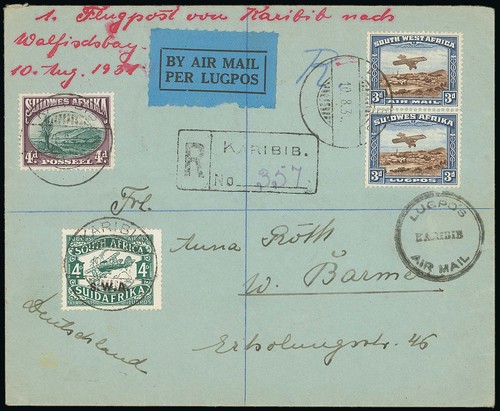 1. Flugpost von Karibib nach
Walfischbay.
10. Aug. 1931
BY AIR MAIL
PER LUGPOS
R
10.8.3
SOUTH WEST AFRICA
3d 3d
AIR MAIL
SUIDWES AFRIKA
3d 3d
LUGPOS
SUIDWES AFRIKA
4d 4d
POSSEËL
R
KARIBIB.
No. 357
LUGPOS
KARIBIB
AIR MAIL
KARIBIB
SOUTH AFRICA
4 4
S.W.A.
SUIDAFRIKA
Frl.
Anna Röth
W. Barmen
Erholungsstr. 46
Deutschland